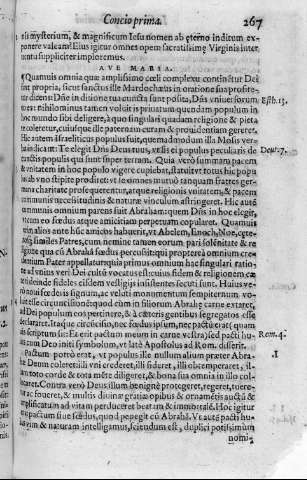 Concio prima. 267
tis mysterium, & magnificum Iesu nomen ab ęterno inditum ex-
ponere valeam? Eius igitur omnes opem sacratissimę Virginis inter
uentu suppliciter imploremus.
AVE MARIA.
Quamuis omnia quæ amplissimo cœli complexu continētur Dei
sint propria, sicut sanctus ille Mardochæus in oratione sua profite-
tur dicens: Dñe in ditione tua cuncta sunt posita, Dñs vniuersorum Esth. 13.
es: nihilominus tamen voluit is priuatum quendam populum in
hoc mundo sibi deligere, à quo singulari quadam religione & pieta
te coleretur, eiusque ille paternam curam & prouidentiam gereret.
Hic autem Israeliticus populus fuit, quemadmodum illa Mosis ver-
ba indicant: Te elegit Dñs Deus tuus, vt sis ei populus peculiaris de Deut. 7.
cunctis populis qui sunt super terram. Quia verò summam pacem
& vnitatem in hoc populo vigere cupiebat, statuit vt totus hic popu
lus ab vno stipite prodiret: vt se omnes mutuò tanquam fratres ger-
mana charitate prosequerentur, atque religionis vnitatem, & pacem
communis necessitudinis & naturæ vinculum astringeret. Hic autē
communis omnium parens fuit Abraham: quem Dñs in hoc elegit,
secum fœdus atque amicitiam perpetuam copularet. Quamuis
alios ante hūc amicos habuerit, vt Abelem, Enoch, Noe, cęte-
similes Patres, cum nemine tamen eorum pari solēnitate & re
qua cū Abrahā fœdus percussit: qui propterea omnium cre
entium Pater appellatur: quia primus omnium hac singulari ratio-
ad vnius veri Dei cultū vocatus est: cuius fidem & religionem cæ
deinde fideles eiusdem vestigiis insistentes secuti sunt. Huius ve-
fœderis signum, ac veluti monumentum sempiternum, vo
esse circuncisionē quod cùm in filiorum Abrahę carne extaret,
Dei populum eos pertinere, & à cæteris gentibus segregatos esse
declararet. Itaque circuncisio, nec fœdus ipsum, nec pactū erat (quam
scriptum sit: Et erit pactum meum in carne vestra) sed pacti hu- Rom. 4.
cum Deo initi symbolum, vt latè Apostolus ad Rom. disserit.
Pactum porrò erat, vt populus ille nullum alium præter Abra- 1
Deum coleret: illi vni crederet, illi fideret, illi obtemperaret, il-
toto corde & tota mēte diligeret, & bona sua omnia in illo col-
locaret. Contra verò Deus illum benignè protegeret, regeret, tuere-
foueret, & multis diuinæ gratiæ opibus & ornamētis auctū &
amplificatum ad vitam perduceret beatam & immortalē. Hoc igitur
pactum siue fœdus, quod pepegit cū Abrahā. Vt autē pacti hu-
& naturam intelligamus, sciendum est, duplici potissimùm
nomi-